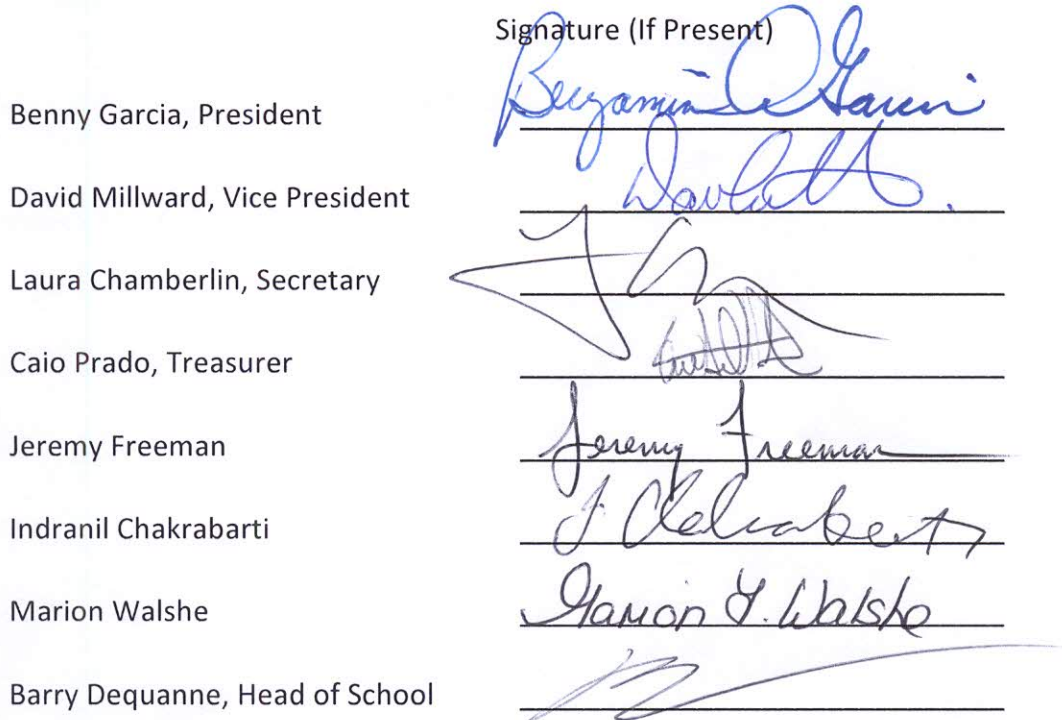 Signature (If Present)
Benny Garcia, President Benjamin
David Millward, Vice President
Laura Chamberlin, Secretary
Caio Prado, Treasurer
Jeremy Freeman Jeremy Freeman
Indranil Chakrabarti
Marion Walshe Marion Y. Walshe
Barry Dequanne, Head of School